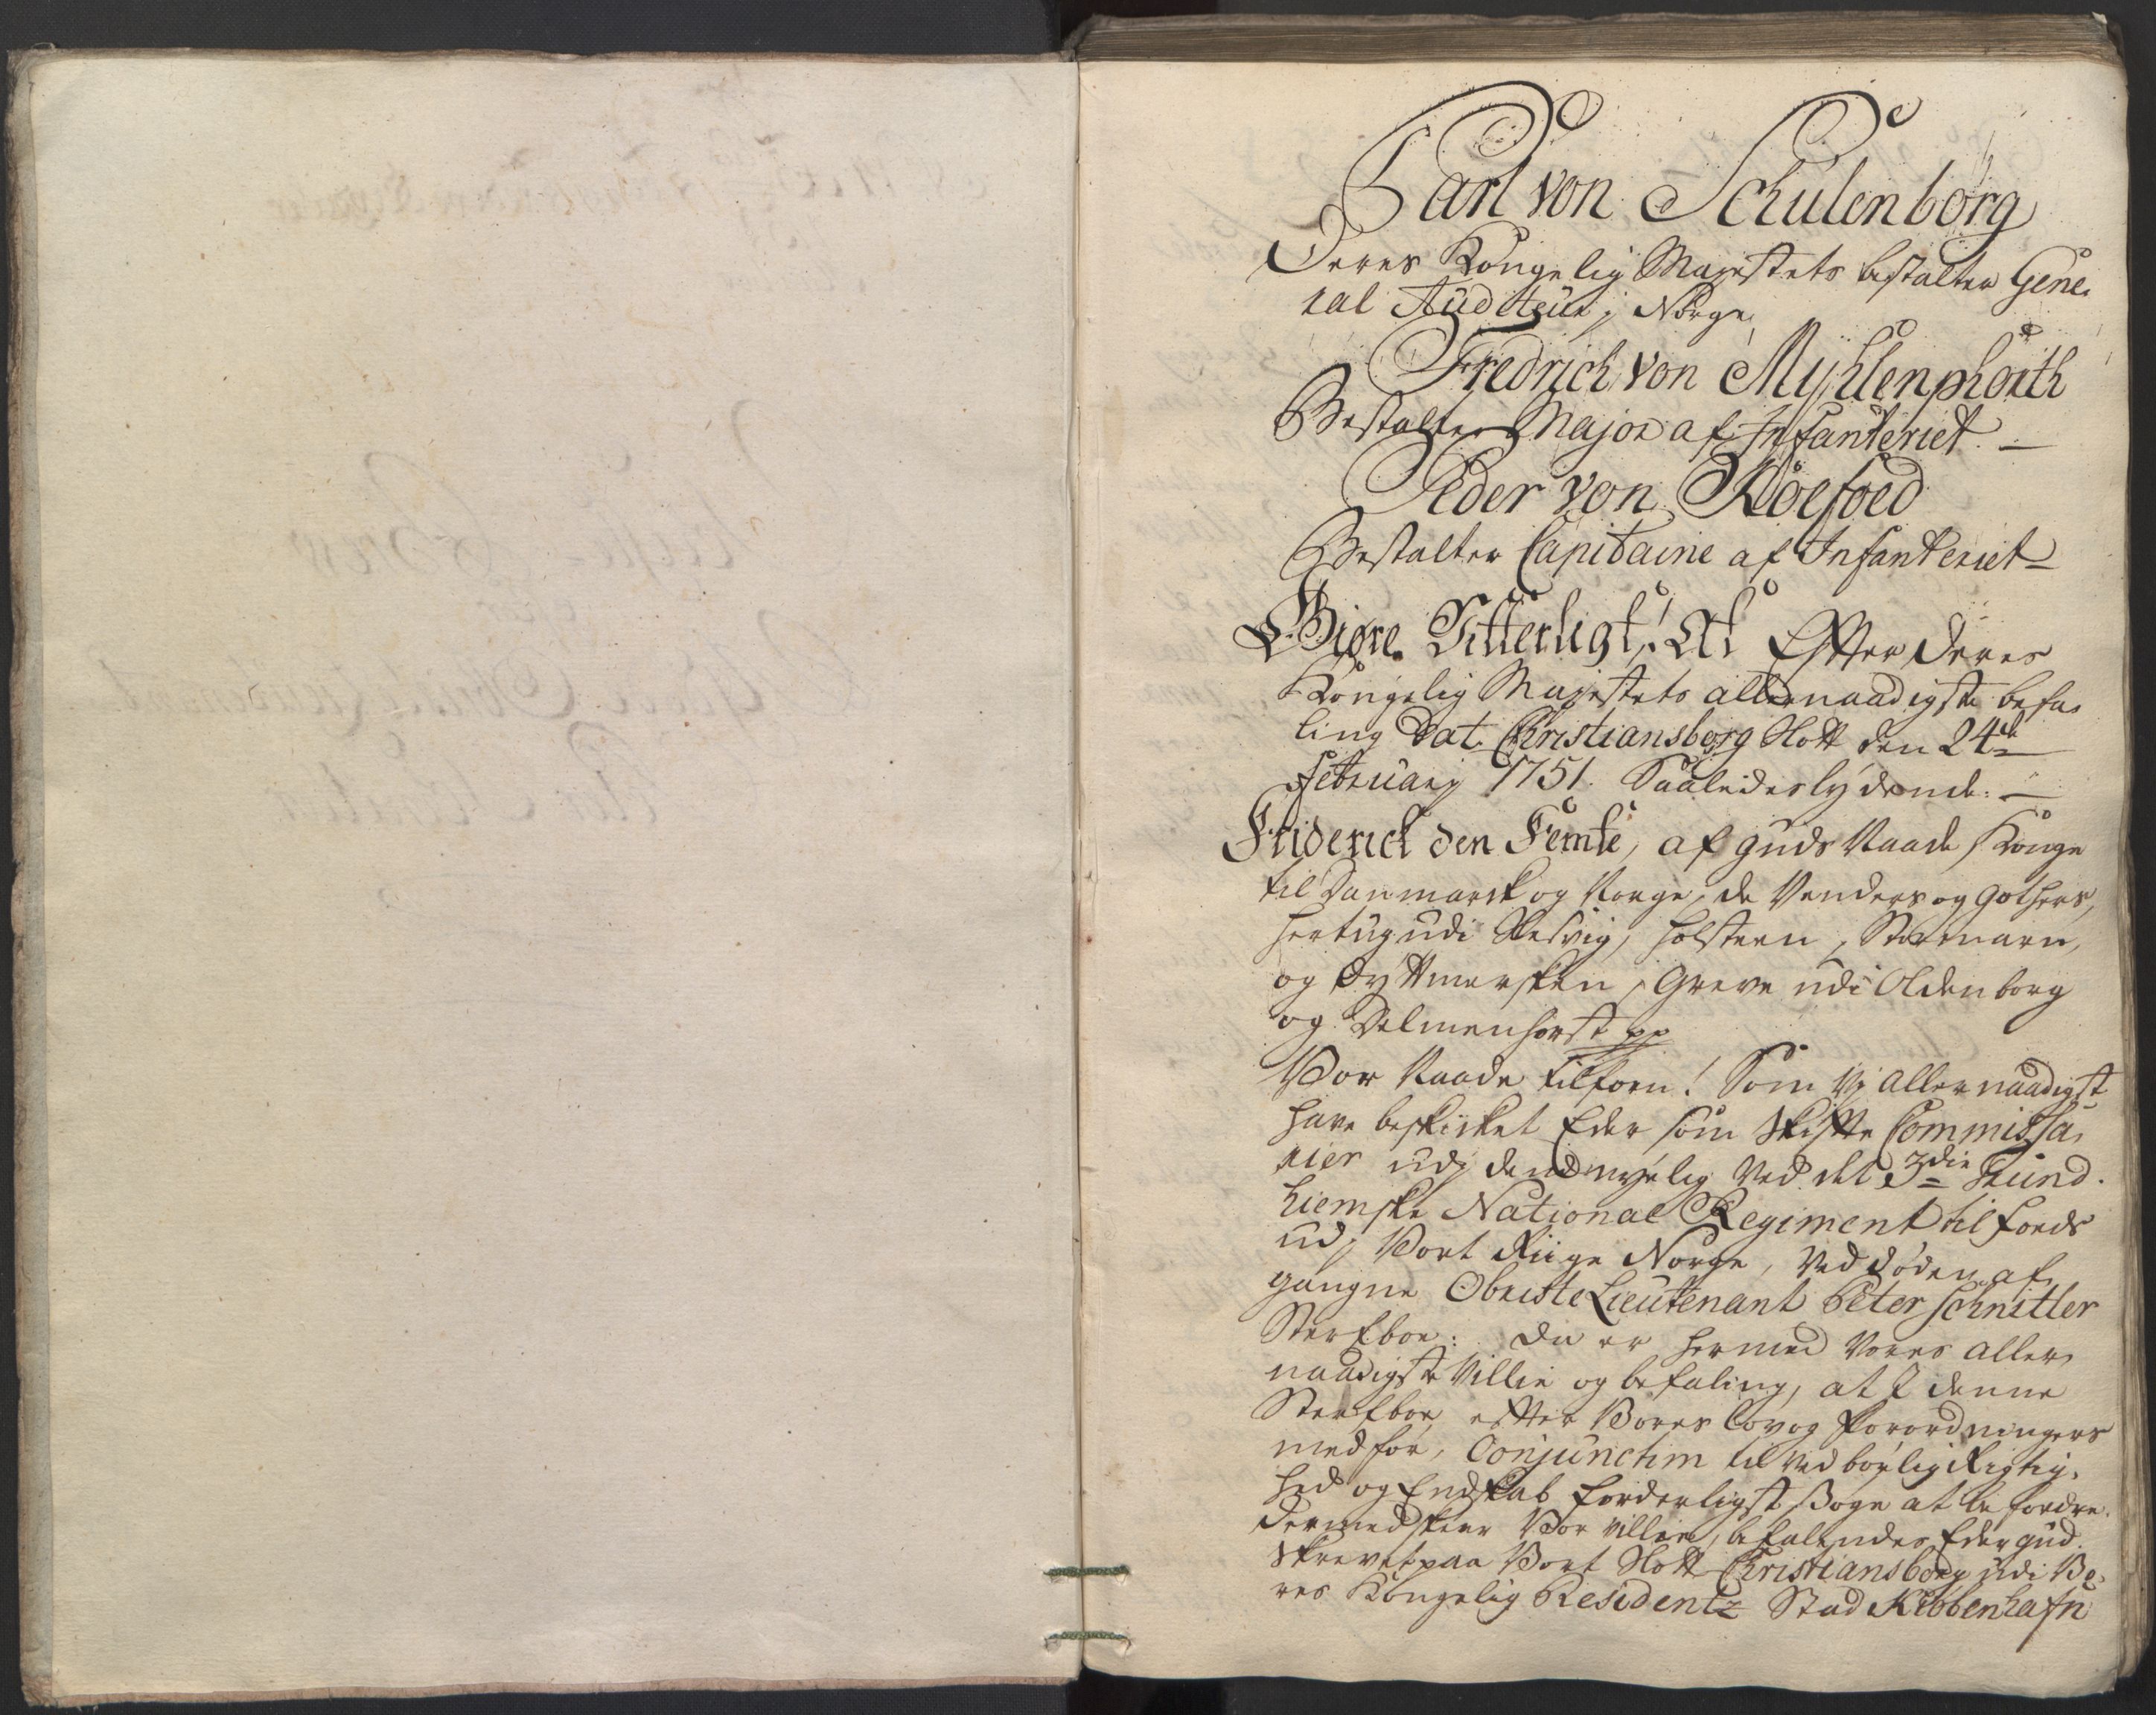 Carl von Schulenborg
Deres Kongelig Majestets bestalter Gene-
ral Auditeur j Norge
Fredrich von Myhlenphorth
Bestalter Major af Infanteriet. —
Peder von Koefoed
Bestalter Capitaine af Infanteriet
Giøre Vitterligt, At Efter Deres
Kongelig Majestets allernaadigste befa-
ling Dat. Christiansborg Slott den 24de
February 1751. Saaledes lydende: —
Friderick den Femte, af Guds Naade, Konge
til Danmarck og Norge, de Venders og Gothers,
Hertug udi Slesvig, Holsteen, Stormarn,
og Dyttmersken, Greve udi Oldenborg
og Delmenhorst pp
Vor Naade tilforn! Som Vj allernaadigst
have beskicket Eder som Skifte Commissa-
rier udj dend nyelig Ved det 3die Trund-
hiemske National Regiment til Foeds
udj Vort Riige Norge, Ved Døden af-
gangne Obriste Lieutenant Peter Schnitler
Sterfboe: Da er hermed Vores aller-
naadigste Villie og befaling, at I denne
Sterfboe efter Vores Lov og Forordningers
medfør, Conjunctim til Ved børlig Rigtig-
hed og Endskab forderligst Søge at befordre.
Dermed skeer Vor Villie, befalendes Eder Gud.
Skrevet paa Vort Slott Christiansborg udi Vo-
res Kongelig Residentz Stad Kiøbenhafn